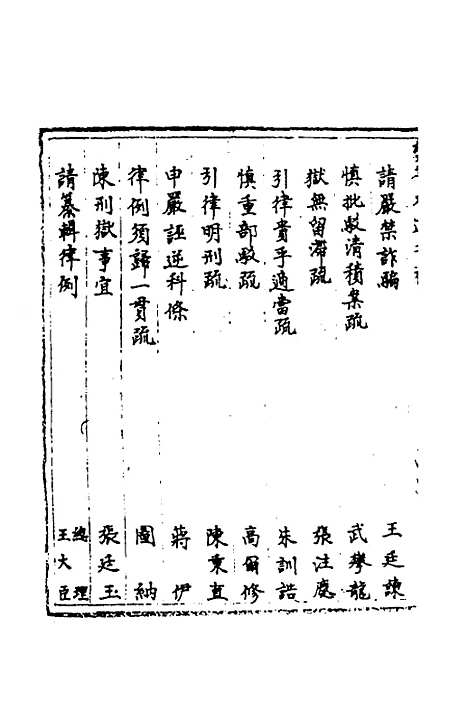 請嚴禁詐騙 王廷諫
慎批駁清積案疏 武攀龍
獄無留滯疏 張注慶
引律貴乎適當疏 朱訓誥
慎重部駁疏 高爾修
引律明刑疏 陳秉直
申嚴誣逆科條 蔣伊
律例須歸一貫疏 圖納
陳刑獄事宜 張廷玉
請纂輯律例 總理王大臣